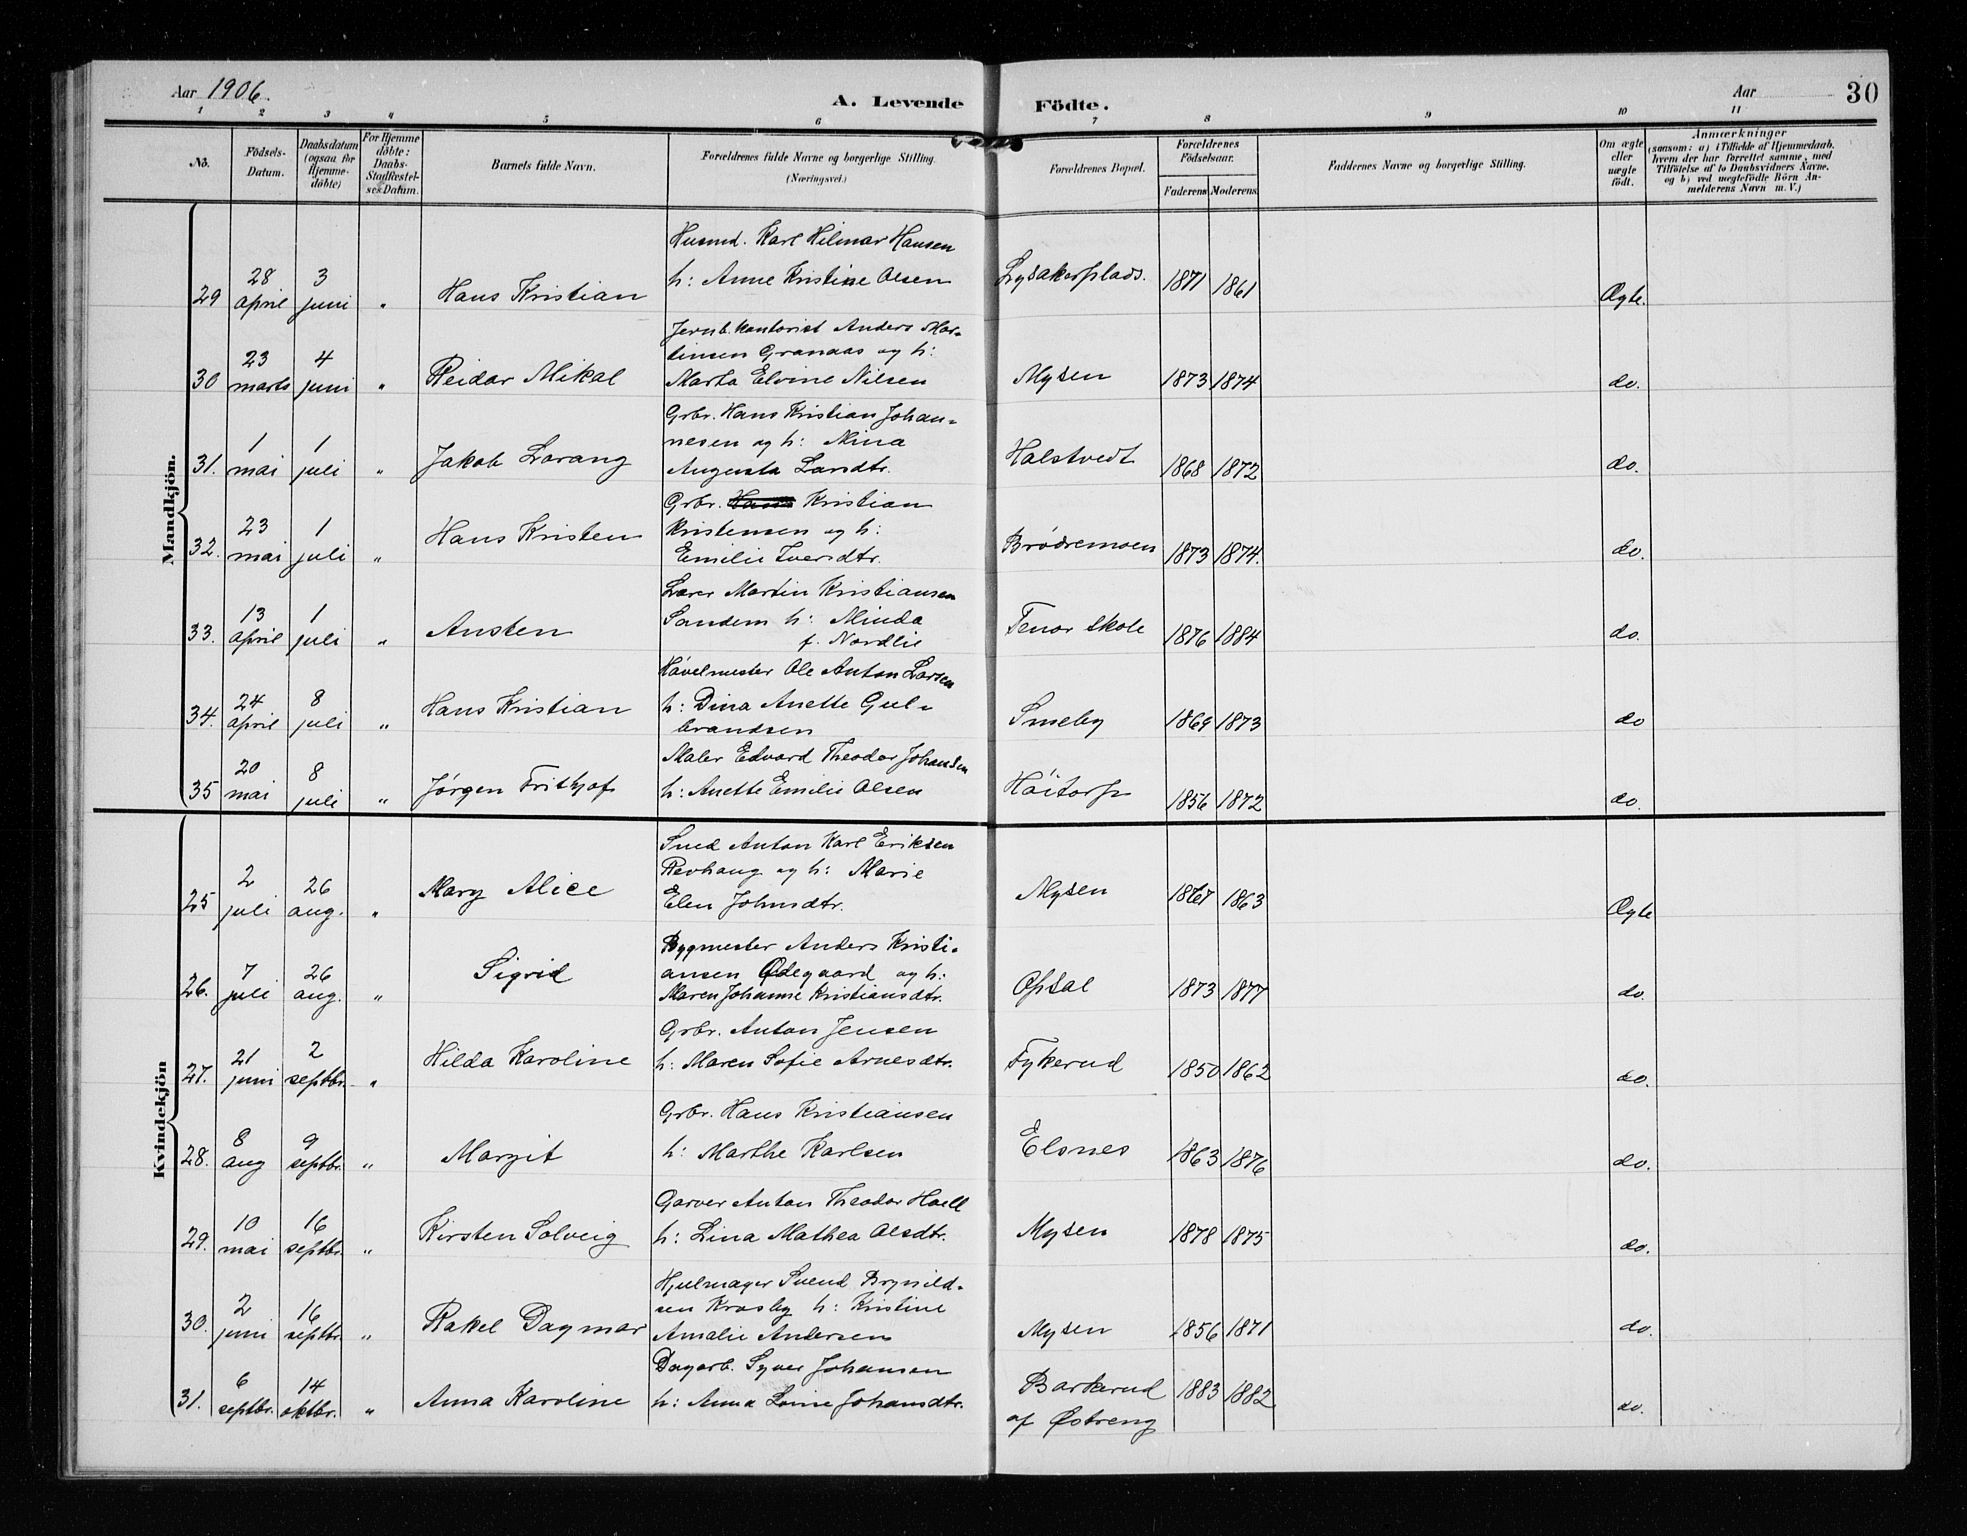 Aar 1906.
A. Levende Födte.
Aar
30
1 2 3 4 5 6 7 8 9 10 11
No.
Födsels-
Datum.
Daabsdatum
(ogsaa for
Hjemme-
döbte)
For Hjemme
döbte:
Daabs-
Stadfestel-
ses Datum.
Barnets fulde Navn.
Forældrenes fulde Navne og borgerlige Stilling.
(Næringsvei.)
Forældrenes Bopæl.
Forældrenes
Födselsaar.
Faderens Moderens
Faddernes Navne og borgerlige Stilling.
Om ægte
eller
uægte
födt.
Anmærkninger
(saasom: a) i Tilfælde af Hjemmedaab,
hvem der har forrettet samme, med
Tilföielse af to Daabsvidners Navne,
og b) ved uægtefödte Börn An-
melderens Navn m. V.)
Mandkjön.
Husmd. Karl Hilmar Hansen
28 3 h: Anne Kristine Olsen Lysakerplads.
29 april juni " Hans Kristian 1871 1861 Ægte.
Jernb.kontorist Anders Mar-
23 4 tinsen Granaas og h:
30 marts juni " Reidar Mikal Marta Elvine Nilsen Mysen 1873 1874 do.
Grbr. Hans Kristian Johan-
1 1 nesen og h: Mina
31. mai juli " Jakob Lorang Augusta Larsdtr. Halstvedt 1868 1872 do.
Grbr. Hans Kristian
23 1 Kristensen og h:
32. mai juli " Hans Kristen Emilie Iversdtr. Brødremoen 1873 1874. do.
Lærer Martin Kristiansen
13 1 Sandem h: Minda
33. april juli " Austen f. Nordlie Tenor skole 1876 1884 do.
Høvelmester Ole Anton Larsen
24 8 h: Dina Anette Gul-
34. april juli " Hans Kristian brandsen Smeby 1869 1873 do
20 8 Maler Edvard Theodor Johansen
35 mai juli " Jørgen Frithjof h: Anette Emilie Olsen Hóitorp 1856 1872 do.
Kvindekjön
Smed Anton Karl Eriksen
2 26 Revhaug og h: Marie
25 juli aug. " Mary Alice Elen Johnsdtr. Mysen 1867 1863 Ægte
Bygmester Anders Kristi-
7 26 ansen Ødegaard og h:
26. juli aug. " Sigrid Maren Johanne Kristiansdtr. Opsal 1873 1877 do.
Grbr. Anton Jensen
21 2 h: Maren Sofie Arnesdtr.
27. juni septbr. " Hilda Karoline Fykerud 1850 1862 do.
Grbr. Hans Kristiansen
8 9 h: Marthe Karlsen
28. aug septbr. " Margit Elsnes 1863 1876 do.
Garver Anton Theodor Hoell
10 16 h: Lina Mathea Olsdtr.
29. mai septbr. " Kirsten Solveig Mysen 1878 1875 do.
Hjulmager Svend Brynild-
2 16 sen Krosby h: Kristine
30. juni septbr. " Rakel Dagmar Amalie Andersen Mysen 1856 1871 do.
Dagarb. Syver Johansen
6 14 h: Anna Lovise Johansdtr. Barkerud
31. septbr. oktbr. " Anna Karoline af Østreng 1883 1882 do.